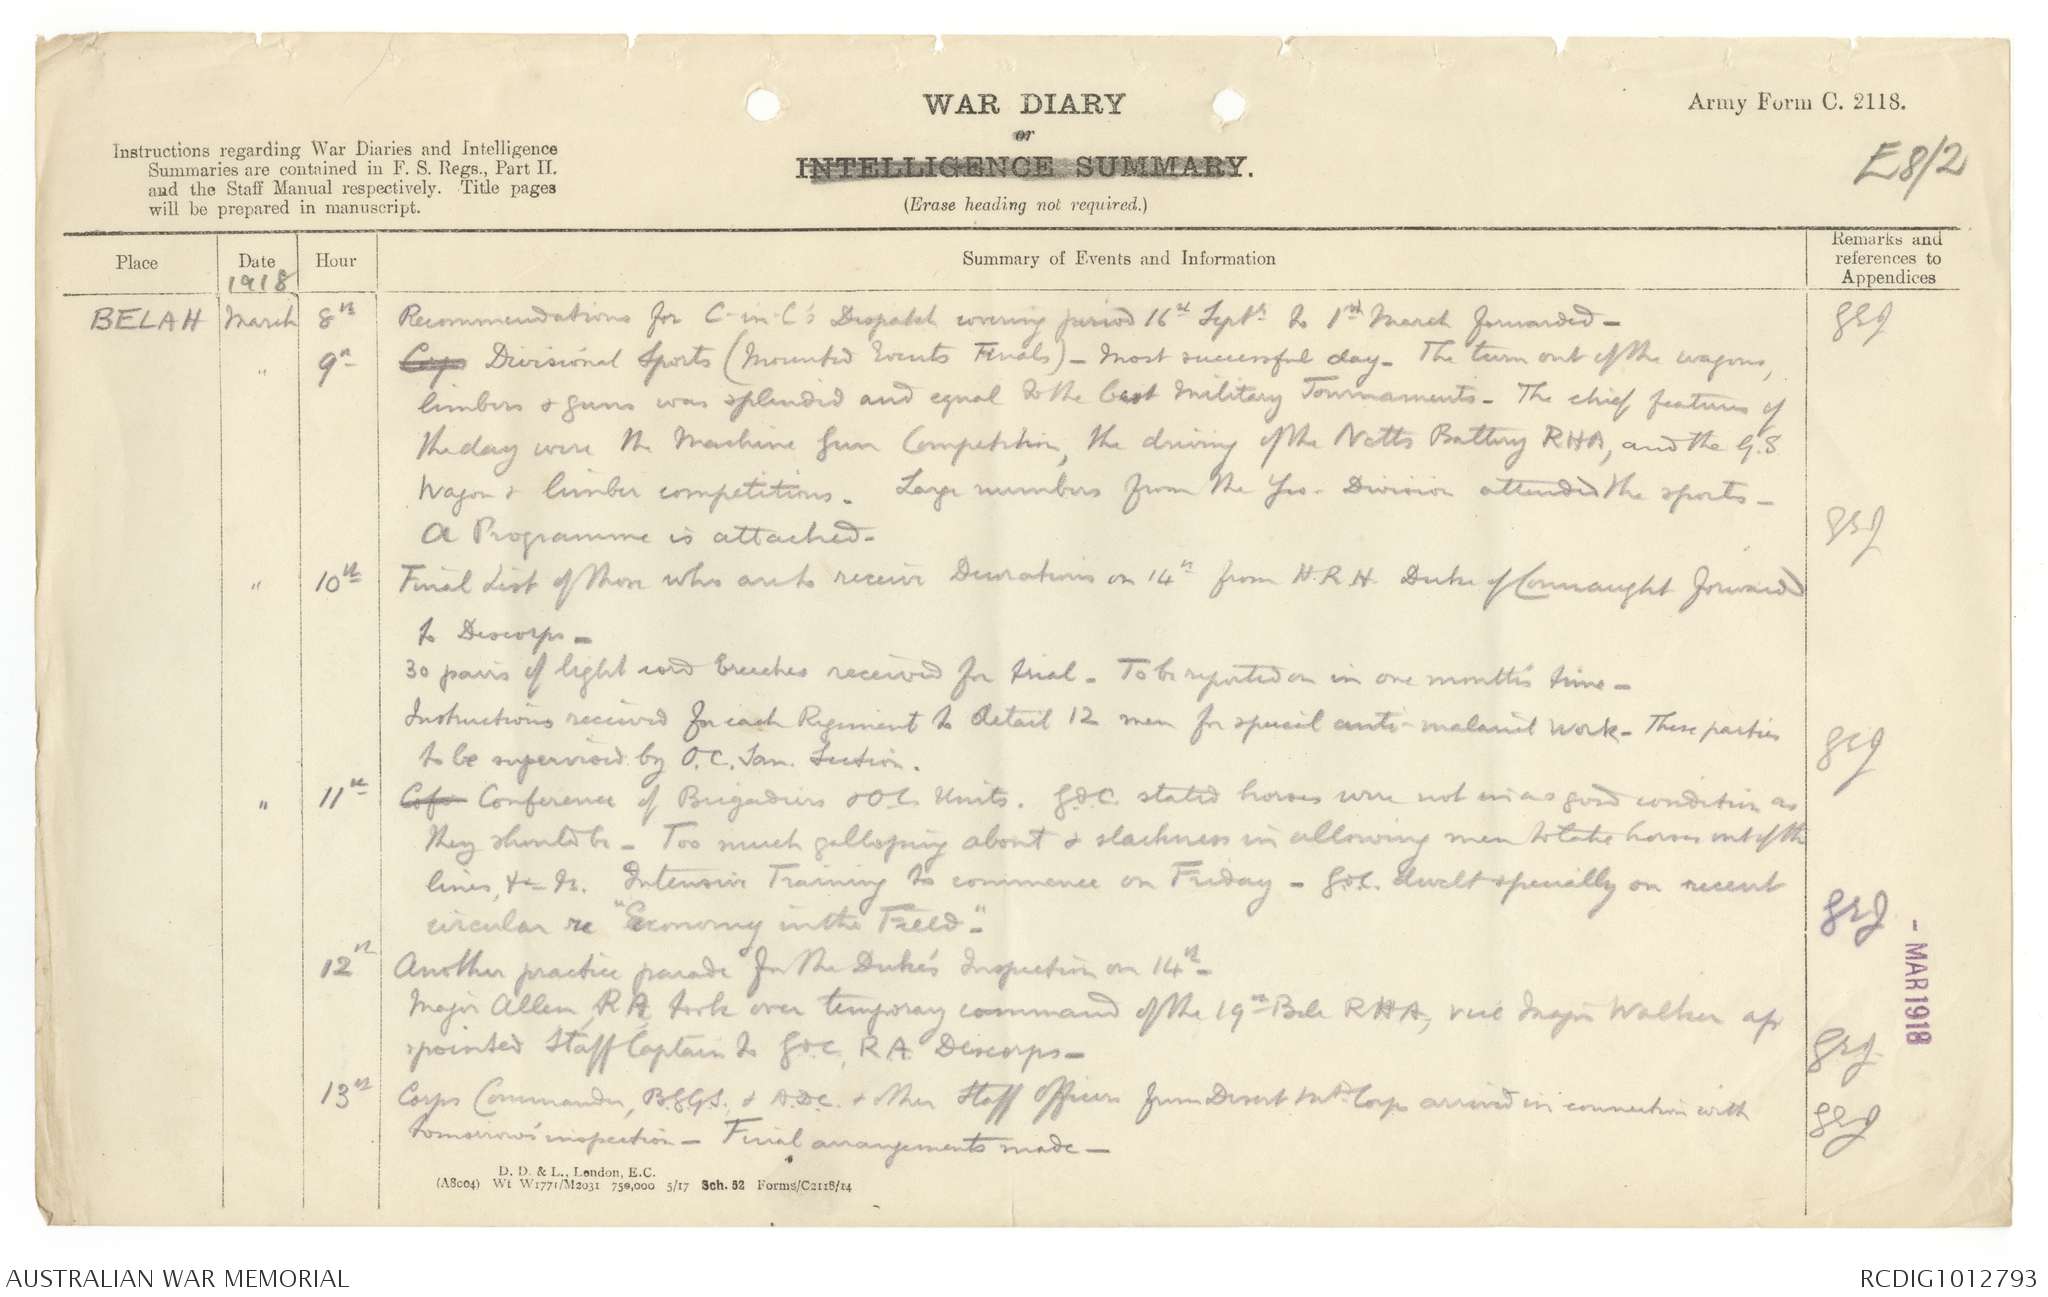 WAR DIARY
or
INTELLIGENCE SUMMARY.
(Erase heading not required.)
Army Form C. 2118.
E8/2
Instructions regarding War Diaries and Intelligence
Summaries are contained in F. S. Regs., Part II.
and the Staff Manual respectively. Title pages
will be prepared in manuscript.
Place
Date
1918
Hour
Summary of Events and Information
Remarks and
references to
Appendices
BELAH March 8th Recommendations for C-in-C's Despatch covering period 16th Septr to 1st March forwarded -
" 9th Corps Divisional Sports (Mounted Events Finals) - Most successful day - The turn out of the wagons,
limbers & guns was splendid and equal to the best Military Tournaments - The chief features of
the day were the Machine Gun Competition, the driving of the Notts Battery RHA, and the G.S.
Wagon & limber competitions. Large numbers from the Yeo. Division attended the sports -
A Programme is attached -
" 10th Final List of those who are to receive Decorations on 14th from H.R.H. Duke of Connaught forward
to Descorps -
30 pairs of light cord breeches received for trial - To be reported on in one month's time -
Instructions received for each Regiment to detail 12 men for special anti-malarial work - These parties
to be supervised by O.C. San. Section.
" 11th Confe Conference of Brigadiers & O.C. Units. G.O.C. stated horses were not in as good condition as
they should be - Too much galloping about & slackness in allowing men to take horses out of the
lines, &c &c. Intensive Training to commence on Friday - G.O.C. dwelt specially on recent
circular re "Economy in the Field" -
12th Another practice parade for the Duke's Inspection on 14th -
Major Allen, RA, took over temporary command of the 19th Bde RHA, vice Major Walker ap
pointed Staff Captain to G.O.C., R.A. Descorps -
13th Corps Commander, B.G.G.S. & A.D.C. & other Staff Officers from Desert Mtd Corps arrived in connection with
tomorrow's inspection - Final arrangements made -
- MAR 1918
D. D. & L., London, E.C.
(A8004) Wt W1771/M2031 750,000 5/17 Sch. 52 Forms/C2118/14
AUSTRALIAN WAR MEMORIAL
RCDIG1012793